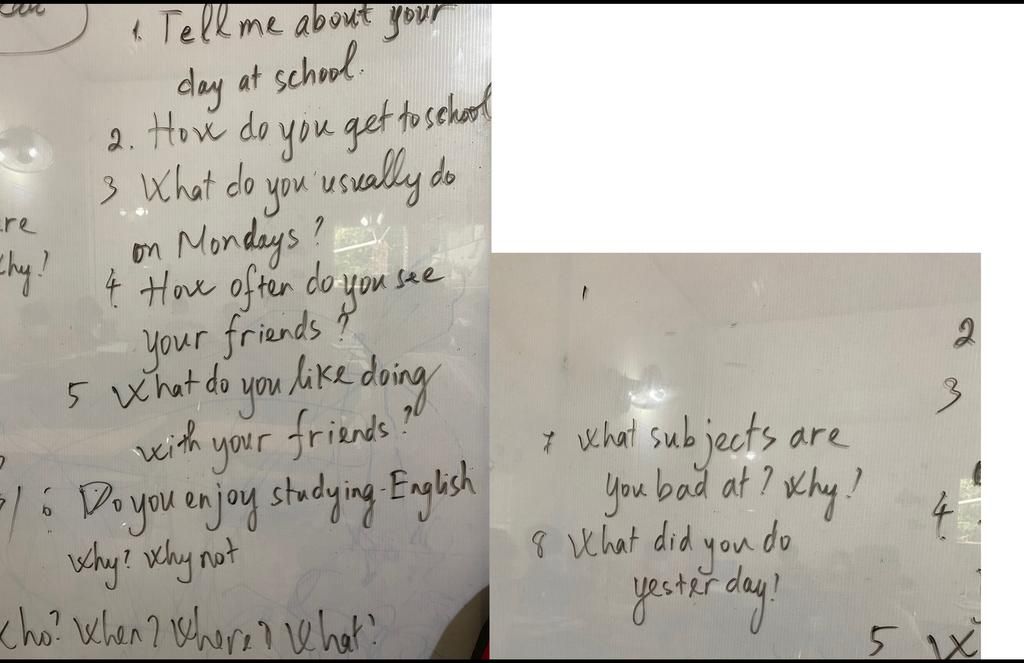 1. Tell me about your
day at school.
2. How do you get to school
3 What do you usually do
on Mondays?
4. How often do you see
your friends?
5 What do you like doing
with your friends?
6 Do you enjoy studying English
Why? Why not
Who? When? Where? What?
re
hy?
2
3
7 What subjects are
you bad at? Why?
4
8 What did you do
yesterday?
5 W